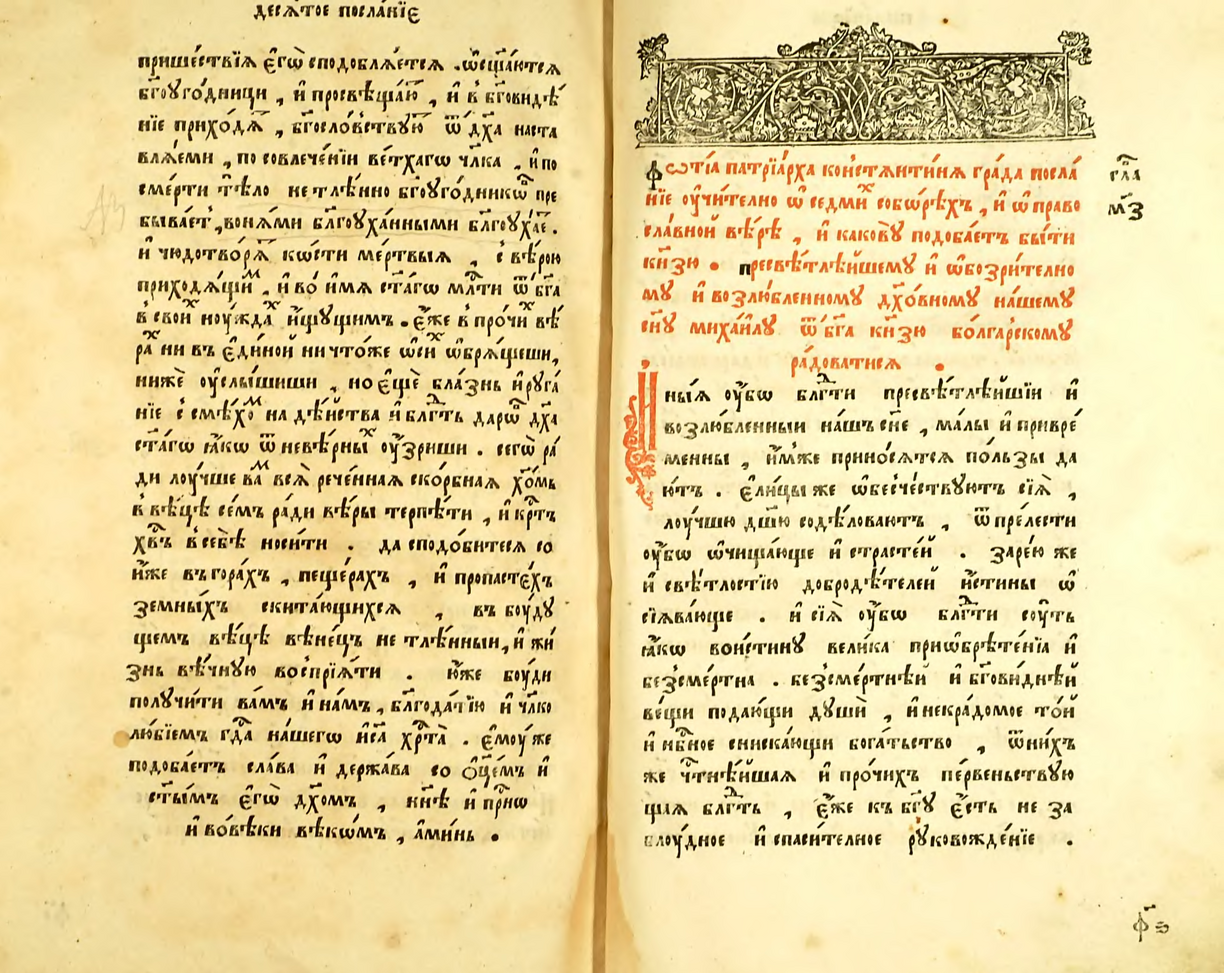 десѧ́тое посла́нїє
прише́ствїѧ є҆гѡ̀ сподоблѧ́етсѧ . ѡ҆сщ҃а́ютсѧ
бг҃оуго́дници , и҆ просвѣща́ю , и҆ в̾ бг҃ови́дѣ́
нїе прихо́дѧ , бг҃осло́вствую ѿ дх҃а наста
влѧ́еми , по совлече́нїи ве́тхагѡ чл҃ка , и҆ по
сме́рти тѣ́ло нетлѣ́нно бг҃оуго́дникѡ пре
быва́ет , вонѧ́ми бл҃гоуха́нными бл҃гоуха́е .
и҆ чюдотворѧ̀ ко́сти ме́ртвыѧ , с вѣ́рою
приходѧ́щиⷨ , и҆ во и҆́мѧ ст҃а́гѡ мл҃ти ѿ бг҃а
в̾ своиⷯ ноу́ждаⷯ и҆́щущимъ . є҆́же в̾ про́чиⷯ вѣ́
раⷯ ни въ є҆ди́ной ничто́же ѡ҆ сиⷯ ѡ҆брѧ́щеши ,
нижѐ оу҆слы́шиши , но є҆щѐ бла́знь и҆ руга́
нїе с̾ смѣ́хоⷨ на дѣ́йства и҆ бл҃гть дарѡ́ дх҃а
ст҃а́гѡ ꙗ҆́кѡ ѿ невѣ́рныⷯ оу҆́зриши . сегѡ̀ ра́
ди лоу́чше ваⷨ всѧ̀ рече́ннаѧ ско́рбнаѧ хо́мь
в̾ вѣ́цѣ се́мъ ра́ди вѣ́ры терпѣ́ти , и҆ кр҃тъ
хв҃ъ в̾ себѣ̀ носи́ти . да сподо́битесѧ со
и҆́же въ гора́хъ , пеще́рахъ , и҆ пропасте́хъ
земны́хъ скита́ющихсѧ , въ боу́ду
щемъ вѣ́цѣ вѣне́цъ нетлѣ́нныи , и҆ жи́
знь вѣ́чную воспрїѧ́ти . ю҆́же боу́ди
получи́ти ва́мъ и҆ на́мъ , благода́тїю и҆ чл҃ко
лю́бїемъ гд҃а на́шегѡ и҆с҃а хр҃та̀ . є҆мо́у же
подоба́етъ сла́ва и҆ держа́ва со ѻ҆ц҃е́мъ и҆
ст҃ы́мъ є҆гѡ̀ дх҃омъ , нн҃ѣ и҆ при́снѡ
и҆ во́вѣки вѣкѡ́мъ , а҆ми́нь .
Фѡтїа патрїа́рха коньстѧнти́нѧ гра́да посла́
нїе оу҆чи́тельно ѡ҆ седмиⷯ собѡ́рѣхъ , и҆ ѡ҆ право
сла́вной вѣ́рѣ , и҆ како́вꙋ подоба́етъ бы́ти
кн҃зю . пресвѣтлѣ́йшемꙋ и҆ ѡ҆бозри́тельно
мꙋ и҆ возлю́бленномꙋ дх҃о́вномꙋ на́шемꙋ
сн҃ꙋ миха́илꙋ ѿ бг҃а кн҃зю болга́рскомꙋ
ра́доватисѧ .
гла
м҃з
И҆ны́ѧ оу҆́бѡ бл҃гти пресвѣтлѣ́йшїи и҆
возлю́бленныи на́шъ сн҃е , ма́лы и҆ привре́
менны , и҆́мже прино́сѧтсѧ по́льзы да
ю́тъ . є҆ли́цы же ѡ҆бесче́ствуютъ сїѧ̀ ,
лоу́чшю дш҃ю содѣ́ловаютъ , ѿ пре́лести
оу҆́бѡ ѡ҆чища́юще и҆ страсте́й . заре́ю же
и҆ свѣ́тлостїю добродѣ́телей и҆́стины ѡ҆
сїѧва́юще . и҆ сїѧ̀ оу҆́бѡ бл҃гти соу́ть
ꙗ҆́кѡ вои́стинꙋ вели́ка приѡбрѣте́нїа и҆
безсме́ртна . безсме́ртнѣй и҆ бг҃ови́днѣй
ве́щи подаю́щи души̇̀ , и҆ некра́домое то́й
и҆ нб҃ное сниска́ющи бога́тьство , ѿ ни́хъ
же чт҃нѣ́йшаѧ и҆ про́чихъ пе́рвеньствую
щаѧ бл҃гть , є҆́же къ бг҃ꙋ є҆́сть не за
блоу́дное и҆ спаси́телное рꙋковожде́нїе .
ф҃ѕ